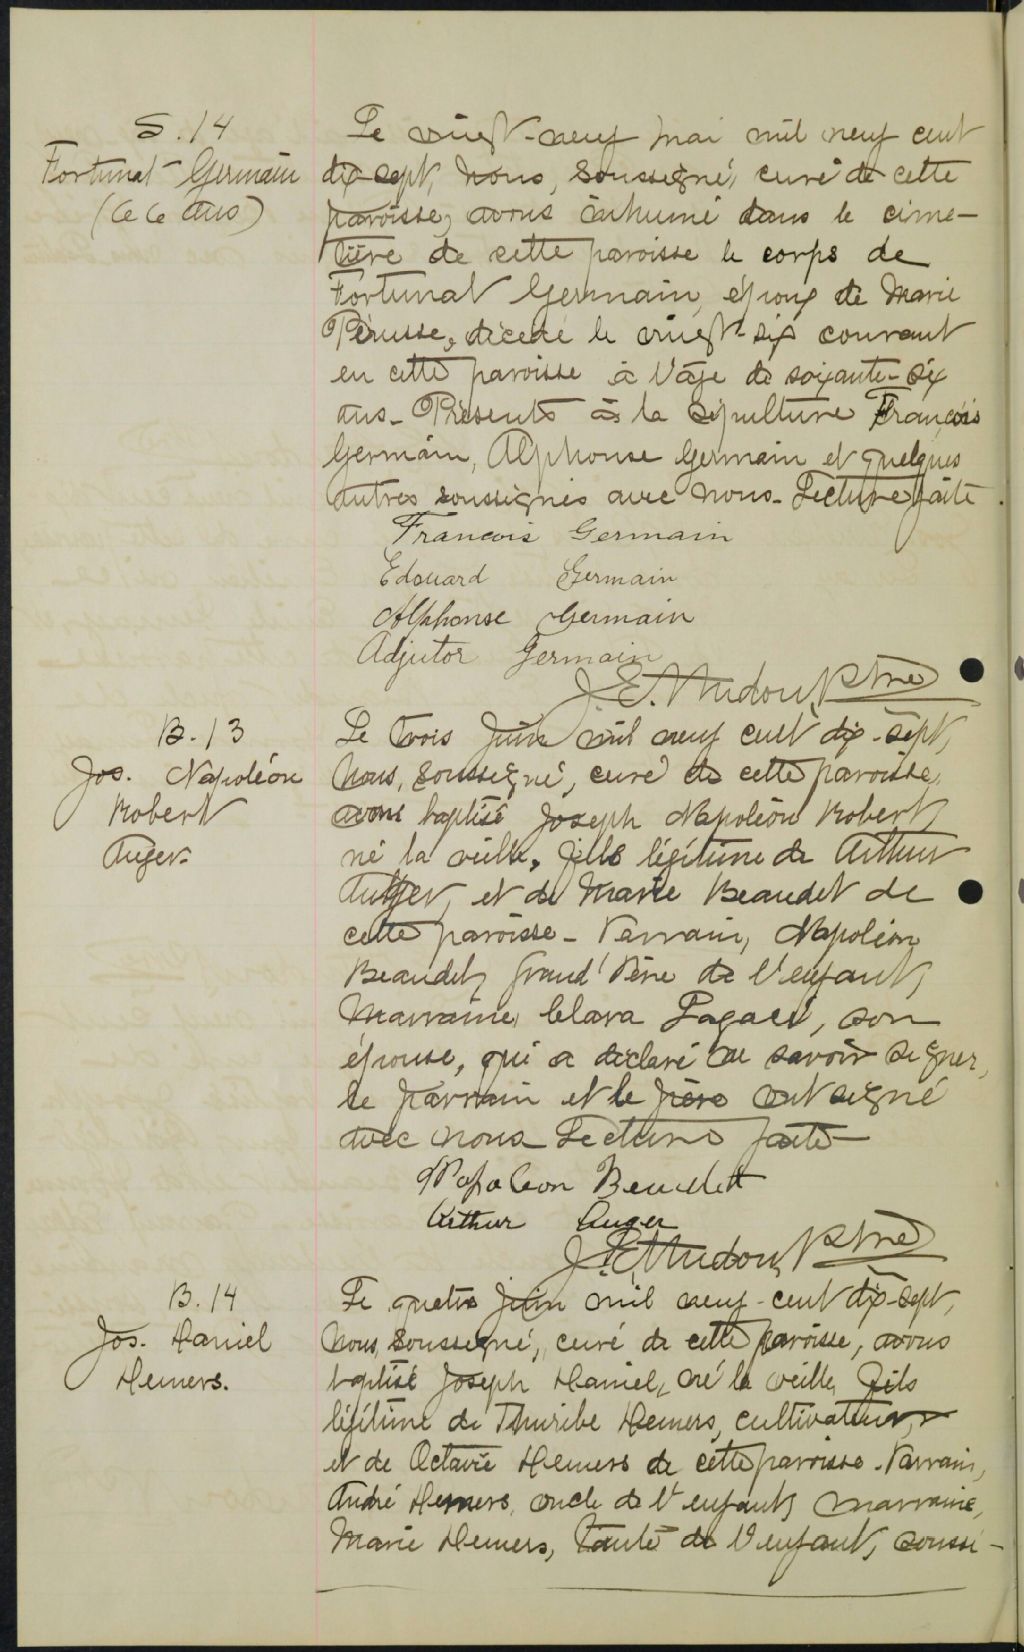 S. 14
Fortunat Germain
(66 ans)
Le vingt-neuf mai mil neuf cent
dix-sept, nous, soussigné, curé de cette
paroisse, avons inhumé dans le cime-
tière de cette paroisse le corps de
Fortunat Germain, époux de Marie
Pérusse, décédé le vingt-six courant
en cette paroisse à l'âge de soixante-six
ans. Présents à la sépulture François
Germain, Alphonse Germain et quelques
autres soussignés avec nous. Lecture faite.
Francois Germain
Edouard Germain
Alphonse Germain
Adjutor Germain
J. E. Ptre
B. 13
Jos. Napoléon
Robert
Auger
Le trois Juin mil neuf cent dix-sept,
nous, soussigné, curé de cette paroisse,
avons baptisé Joseph Napoléon Robert,
né la veille, fils légitime de Arthur
Auger, et de Marie Beaudet de
cette paroisse - Parrain, Napoléon
Beaudet, grand'Père de l'enfant,
Marraine, Clara Pagacé, son
épouse, qui a déclaré ne savoir signer,
le parrain et le père ont signé
avec nous Lecture faite-
Napoleon Beaudett
Arthur Auger
J. E. Ptre
B. 14
Jos. Daniel
Hemers.
Le quatre Juin mil neuf-cent dix-sept,
nous, soussigné, curé de cette paroisse, avons
baptisé Joseph Daniel, né la veille, fils
légitime de Thuribe Hemers, cultivateur,
et de Octavie Hemers de cette paroisse. Parrain,
André Hemers, oncle de l'enfant, marraine,
Marie Hemers, tante de l'enfant, soussi-